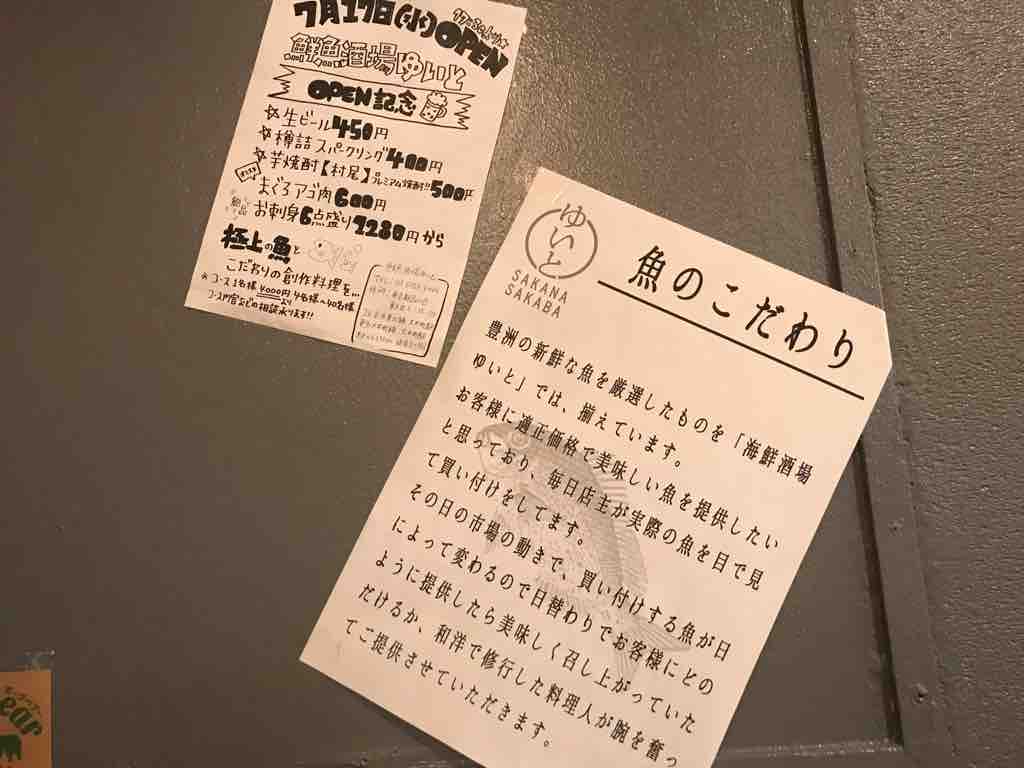 7月17日(水)OPEN
鮮魚酒場ゆいと
OPEN記念
生ビール450円
樽詰スパークリング400円
芋焼酎【村尾】プレミアム焼酎!!500円
まぐろアゴ肉600円
お刺身6点盛り1280円から
極上の魚と
こだわりの創作料理を…
*コース1名様4000円より4名様〜40名様
コース内容などの相談承ります!!
ゆいと
SAKANA
SAKABA
魚のこだわり
豊洲の新鮮な魚を厳選したものを「海鮮酒場
ゆいと」では、揃えています。
お客様に適正価格で美味しい魚を提供したい
と思っており、毎日店主が実際の魚を目で見
て買い付けをしてます。
その日の市場の動きで、買い付けする魚が日
によって変わるので日替わりでお客様にどの
ように提供したら美味しく召し上がっていた
だけるか、和洋で修行した料理人が腕を奮っ
てご提供させていただきます。